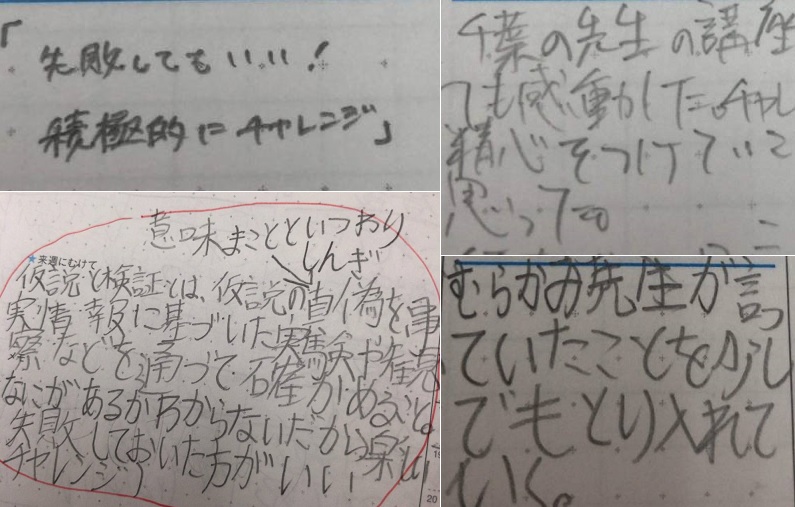 「失敗してもいい！
積極的にチャレンジ」
千葉の先生の講座
ても感動した。チャレ
精心をつけていこ
思った。
意味まことといつわり
しんぎ
★来週にむけて
仮説と検証とは、仮説の真偽を事
実情報に基づいた実験や観
察などを通って確かめること。
なにがあるか分からないだから
失敗しておいた方がいい楽しい
チャレンジ）
20
むらかみ先生が言っ
ていたことを少し
でもとり入れて
いく。